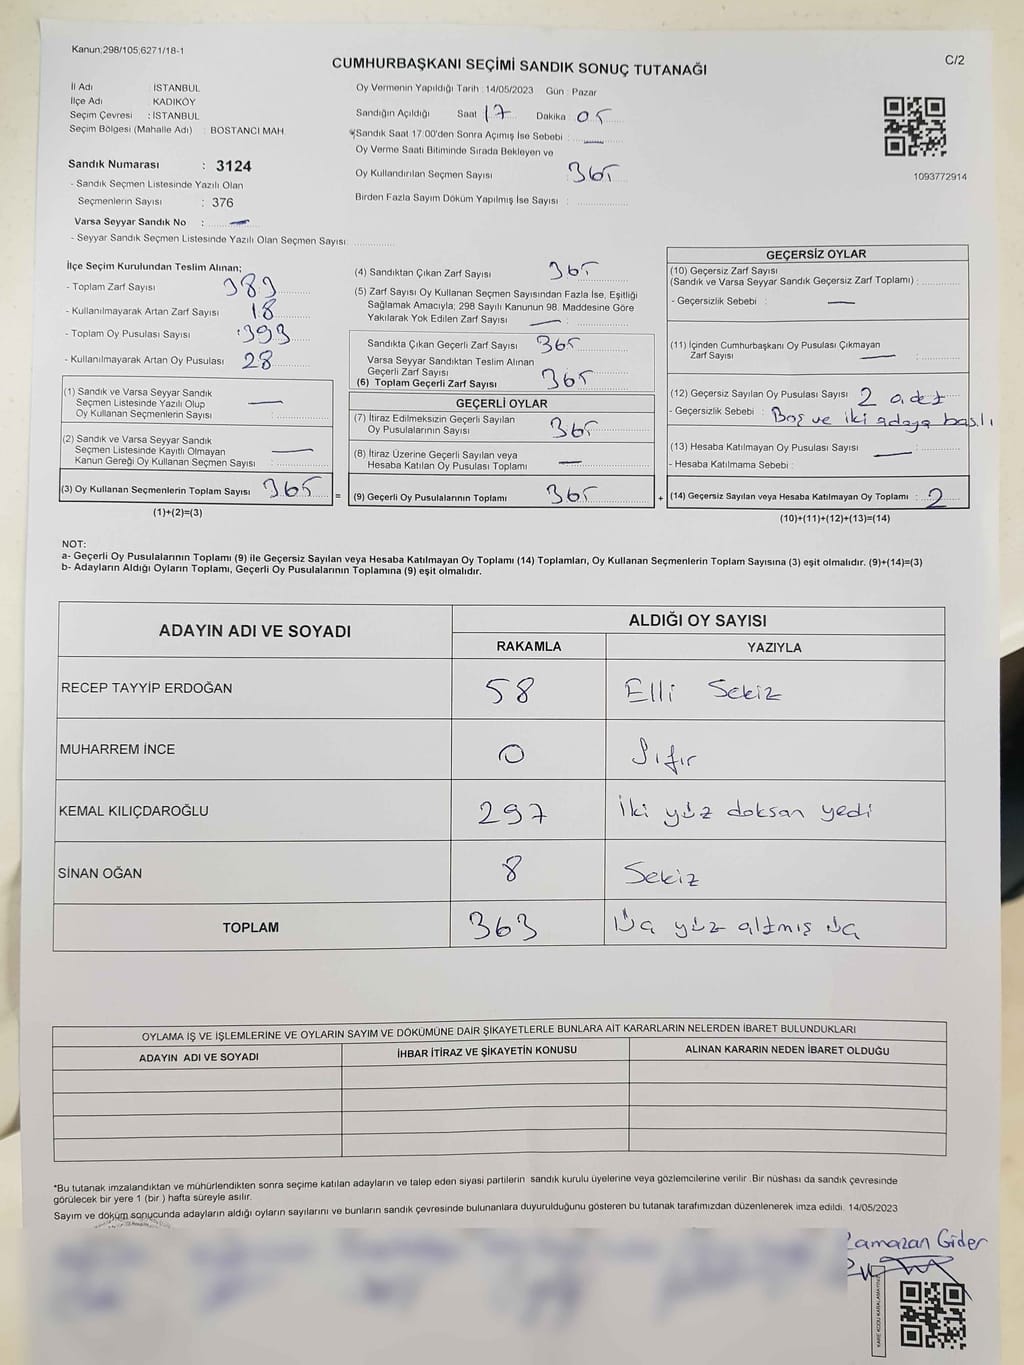 Kanun;298/105;6271/18-1
C/2
CUMHURBAŞKANI SEÇİMİ SANDIK SONUÇ TUTANAĞI
İl Adı : İSTANBUL
İlçe Adı : KADIKÖY
Seçim Çevresi : İSTANBUL
Seçim Bölgesi (Mahalle Adı) : BOSTANCI MAH.
Sandık Numarası : 3124
- Sandık Seçmen Listesinde Yazılı Olan
Seçmenlerin Sayısı : 376
Varsa Seyyar Sandık No : —
- Seyyar Sandık Seçmen Listesinde Yazılı Olan Seçmen Sayısı:
Oy Vermenin Yapıldığı Tarih : 14/05/2023 Gün : Pazar
Sandığın Açıldığı Saat 17 Dakika 05
*Sandık Saat 17:00'den Sonra Açılmış İse Sebebi : —
Oy Verme Saati Bitiminde Sırada Bekleyen ve
Oy Kullandırılan Seçmen Sayısı : 365
Birden Fazla Sayım Döküm Yapılmış İse Sayısı :
1093772914
İlçe Seçim Kurulundan Teslim Alınan;
- Toplam Zarf Sayısı : 383
- Kullanılmayarak Artan Zarf Sayısı : 18
- Toplam Oy Pusulası Sayısı : 393
- Kullanılmayarak Artan Oy Pusulası : 28
(1) Sandık ve Varsa Seyyar Sandık
Seçmen Listesinde Yazılı Olup
Oy Kullanan Seçmenlerin Sayısı : —
(2) Sandık ve Varsa Seyyar Sandık
Seçmen Listesinde Kayıtlı Olmayan
Kanun Gereği Oy Kullanan Seçmen Sayısı : —
(3) Oy Kullanan Seçmenlerin Toplam Sayısı : 365 =
(1)+(2)=(3)
(4) Sandıktan Çıkan Zarf Sayısı : 365
(5) Zarf Sayısı Oy Kullanan Seçmen Sayısından Fazla İse, Eşitliği
Sağlamak Amacıyla; 298 Sayılı Kanunun 98. Maddesine Göre
Yakılarak Yok Edilen Zarf Sayısı : —
Sandıkta Çıkan Geçerli Zarf Sayısı : 365
Varsa Seyyar Sandıktan Teslim Alınan
Geçerli Zarf Sayısı :
(6) Toplam Geçerli Zarf Sayısı : 365
GEÇERLİ OYLAR
(7) İtiraz Edilmeksizin Geçerli Sayılan
Oy Pusulalarının Sayısı : 365
(8) İtiraz Üzerine Geçerli Sayılan veya
Hesaba Katılan Oy Pusulası Toplamı : —
(9) Geçerli Oy Pusulalarının Toplamı : 365 +
GEÇERSİZ OYLAR
(10) Geçersiz Zarf Sayısı
(Sandık ve Varsa Seyyar Sandık Geçersiz Zarf Toplamı) :
- Geçersizlik Sebebi : —
(11) İçinden Cumhurbaşkanı Oy Pusulası Çıkmayan
Zarf Sayısı : —
(12) Geçersiz Sayılan Oy Pusulası Sayısı : 2 adet
- Geçersizlik Sebebi : Boş ve iki adaya basılı
(13) Hesaba Katılmayan Oy Pusulası Sayısı : —
- Hesaba Katılmama Sebebi :
(14) Geçersiz Sayılan veya Hesaba Katılmayan Oy Toplamı : 2
(10)+(11)+(12)+(13)=(14)
NOT:
a- Geçerli Oy Pusulalarının Toplamı (9) ile Geçersiz Sayılan veya Hesaba Katılmayan Oy Toplamı (14) Toplamları, Oy Kullanan Seçmenlerin Toplam Sayısına (3) eşit olmalıdır. (9)+(14)=(3)
b- Adayların Aldığı Oyların Toplamı, Geçerli Oy Pusulalarının Toplamına (9) eşit olmalıdır.
ADAYIN ADI VE SOYADI ALDIĞI OY SAYISI
RAKAMLA YAZIYLA
RECEP TAYYİP ERDOĞAN 58 Elli Sekiz
MUHARREM İNCE 0 Sıfır
KEMAL KILIÇDAROĞLU 297 İki yüz doksan yedi
SİNAN OĞAN 8 Sekiz
TOPLAM 363 Üç yüz altmış üç
OYLAMA İŞ VE İŞLEMLERİNE VE OYLARIN SAYIM VE DÖKÜMÜNE DAİR ŞİKAYETLERLE BUNLARA AİT KARARLARIN NELERDEN İBARET BULUNDUKLARI
ADAYIN ADI VE SOYADI İHBAR İTİRAZ VE ŞİKAYETİN KONUSU ALINAN KARARIN NEDEN İBARET OLDUĞU
*Bu tutanak imzalandıktan ve mühürlendikten sonra seçime katılan adayların ve talep eden siyasi partilerin sandık kurulu üyelerine veya gözlemcilerine verilir. Bir nüshası da sandık çevresinde
görülecek bir yere 1 (bir ) hafta süreyle asılır.
Sayım ve döküm sonucunda adayların aldığı oyların sayılarını ve bunların sandık çevresinde bulunanlara duyurulduğunu gösteren bu tutanak tarafımızdan düzenlenerek imza edildi. 14/05/2023
Ramazan Gider